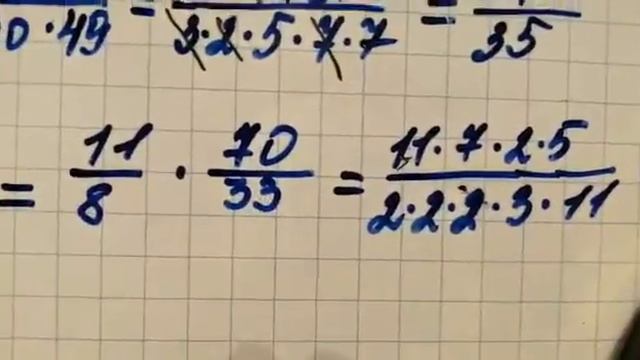 0 · 49 = 3·2·5·7·7 = 35
= 11/8 · 70/33 = 11·7·2·5/2·2·2·3·11